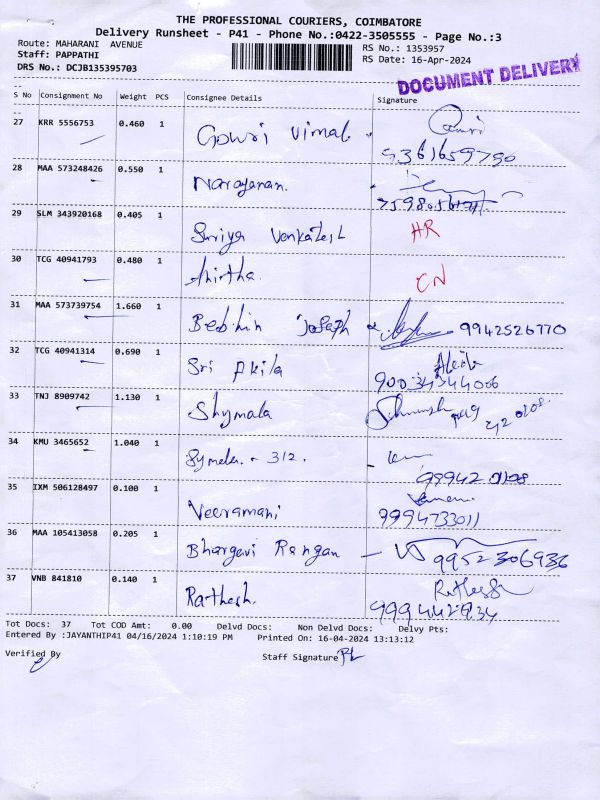 THE PROFESSIONAL COURIERS, COIMBATORE
Delivery Runsheet - P41 - Phone No.:0422-3505555 - Page No.:3
Route: MAHARANI AVENUE
RS No.: 1353957
Staff: PAPPATHI
RS Date: 16-Apr-2024
DRS No.: DCJB135395703
DOCUMENT DELIVERY
S No Consignment No Weight PCS Consignee Details Signature
27 KRR 5556753 0.460 1 Gowri Vimal
9361659790
28 MAA 573248426 0.550 1 Narayanan.
29 SLM 343920168 0.405 1 Suriya Venkatesh HR
30 TCG 40941793 0.480 1 CN
31 MAA 573739754 1.660 1 Joseph 9942526770
32 TCG 40941314 0.690 1 Sri Akila
33 TNJ 8909742 1.130 1 Shymala
34 KMU 3465652 1.040 1 312.
35 IXM 506128497 0.100 1 Veeramani
9994733011
36 MAA 105413058 0.205 1 Bhargavi Rangan 9952306936
37 VNB 841810 0.140 1 Rathesh.
Tot Docs: 37 Tot COD Amt: 0.00 Delvd Docs: Non Delvd Docs: Delvy Pts:
Entered By :JAYANTHIP41 04/16/2024 1:10:19 PM Printed On: 16-04-2024 13:13:12
Verified By Staff Signature